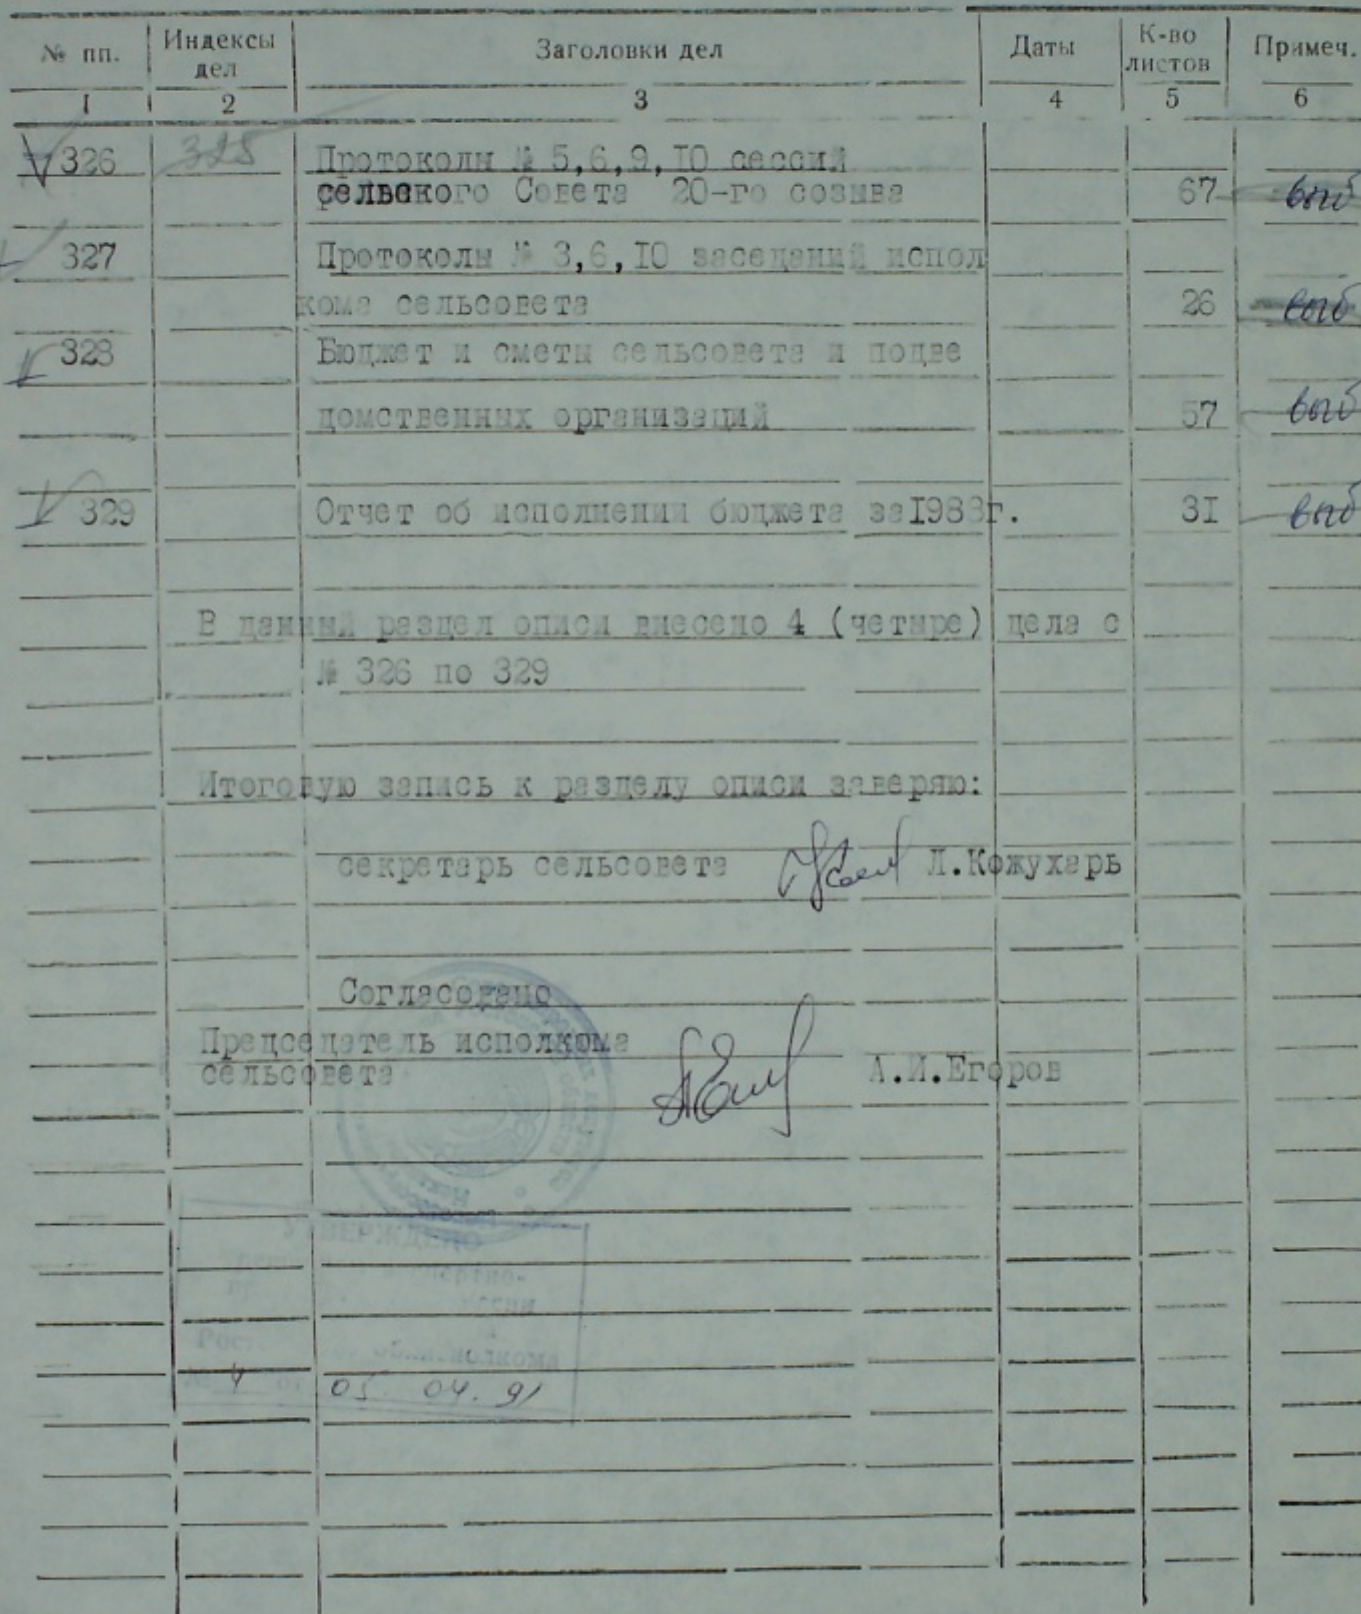 № пп. Индексы дел Заголовки дел Даты К-во листов Примеч.
1 2 3 4 5 6
326 325 Протоколы № 5,6,9,10 сессий
сельского Совета 20-го созыва 67 выб
327 Протоколы № 3,6,10 заседаний испол
кома сельсовета 26 выб
328 Бюджет и сметы сельсовета и подве
домственных организаций 57 выб
329 Отчет об исполнении бюджета за 1988г. 31 выб
В данный раздел описи внесено 4 (четыре) дела с
№ 326 по 329
Итоговую запись к разделу описи заверяю:
секретарь сельсовета Л.Кожухарь
Согласовано
Председатель исполкома
сельсовета А.И.Егоров
УТВЕРЖДЕНО
облисполкома
№ 4 от 05. 04. 91